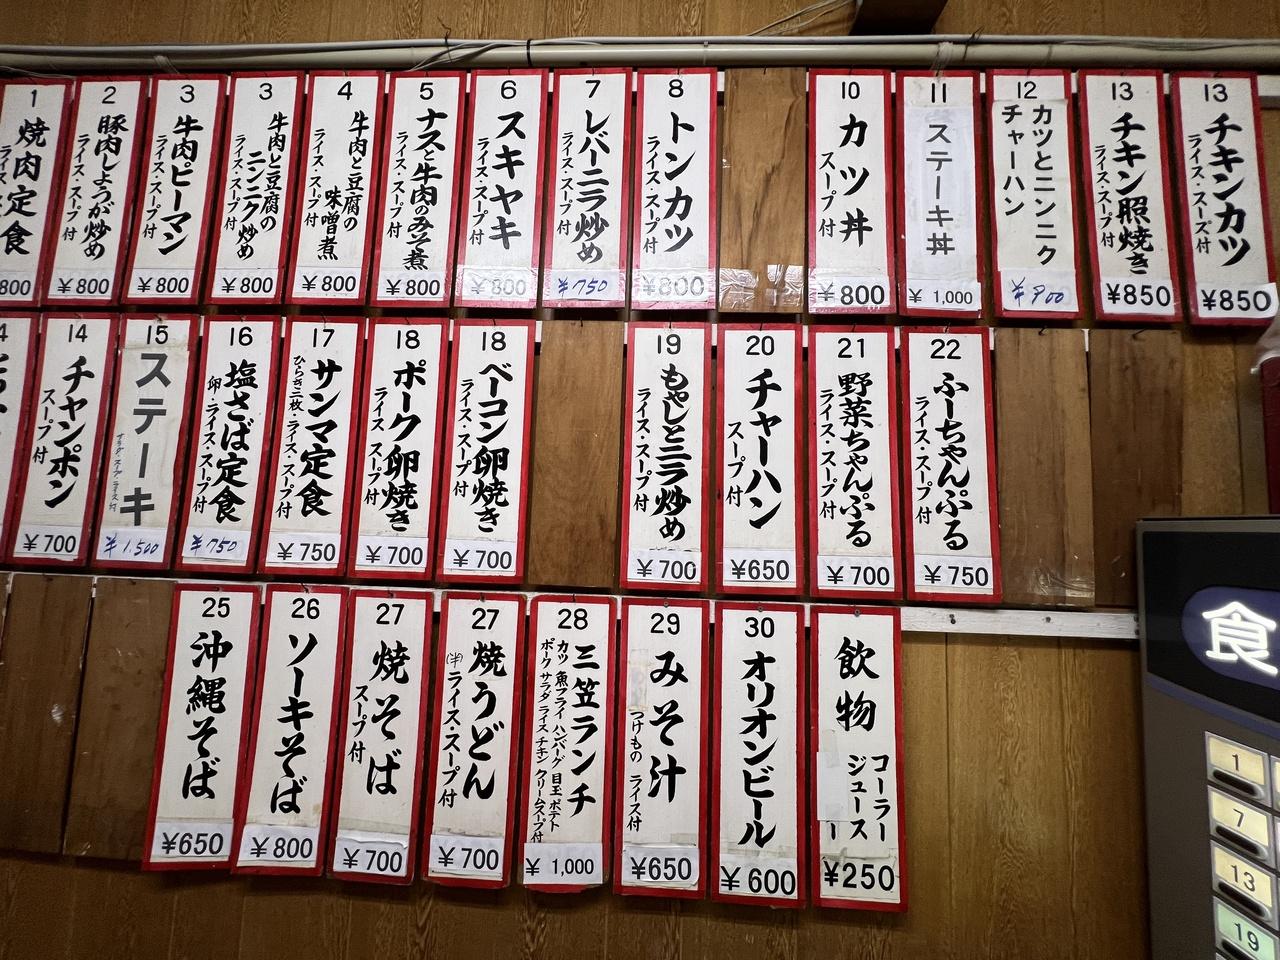 1
焼肉定食
800
2
豚肉しょうが炒め
ライス・スープ付
¥800
3
牛肉ピーマン
ライス・スープ付
¥800
3
牛肉と豆腐の
ニンニク炒め
ライス・スープ付
¥800
4
牛肉と豆腐の
味噌煮
ライス・スープ付
¥800
5
ナスと牛肉のみそ煮
ライス・スープ付
¥800
6
スキヤキ
ライス・スープ付
¥800
7
レバーニラ炒め
ライス・スープ付
¥750
8
トンカツ
ライス・スープ付
¥800
10
カツ丼
スープ付
¥800
11
ステーキ丼
¥1,000
12
カツとニンニク
チャーハン
¥900
13
チキン照焼き
ライス・スープ付
¥850
13
チキンカツ
ライス・スープ付
¥850
14
チャンポン
スープ付
¥700
15
ステーキ
サラダ・スープ・ライス付
¥1,500
16
塩さば定食
卵・ライス・スープ付
¥750
17
サンマ定食
ひらき二枚・ライス・スープ付
¥750
18
ポーク卵焼き
ライス・スープ付
¥700
18
ベーコン卵焼き
ライス・スープ付
¥700
19
もやしとニラ炒め
ライス・スープ付
¥700
20
チャーハン
スープ付
¥650
21
野菜ちゃんぷる
ライス・スープ付
¥700
22
ふーちゃんぷる
ライス・スープ付
¥750
25
沖縄そば
¥650
26
ソーキそば
¥800
27
焼そば
スープ付
¥700
27
焼うどん
(半)ライス・スープ付
¥700
28
三笠ランチ
カツ 魚フライ ハンバーグ 目玉 ポテト
ポーク サラダ ライス チキン クリームスープ付
¥1,000
29
みそ汁
つけもの ライス付
¥650
30
オリオンビール
¥600
飲物
コーラー
ジュース
¥250
食
1
7
13
19